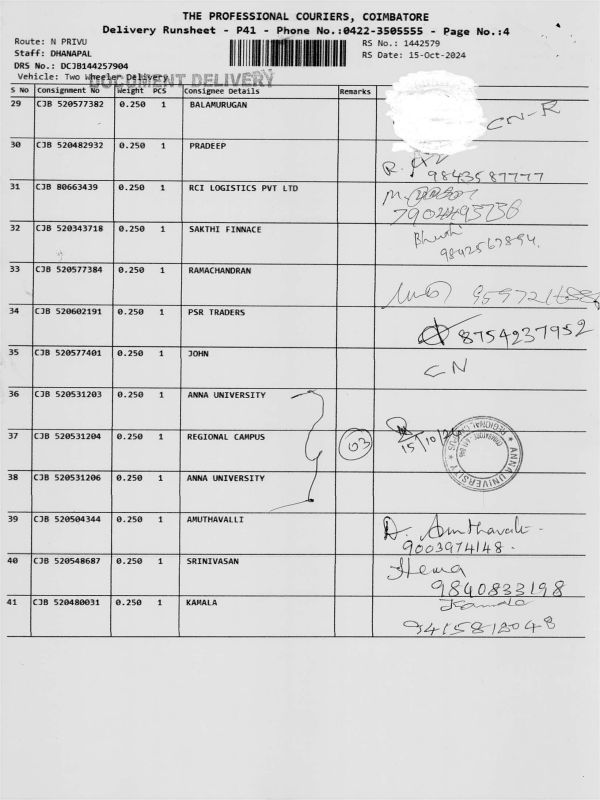 THE PROFESSIONAL COURIERS, COIMBATORE
Delivery Runsheet - P41 - Phone No.:0422-3505555 - Page No.:4
Route: N PRIVU
RS No.: 1442579
Staff: DHANAPAL
RS Date: 15-Oct-2024
DRS No.: DCJB144257904
Vehicle: Two Wheeler Delivery
DOCUMENT DELIVERY
S No Consignment No Weight PCS Consignee Details Remarks
29 CJB 520577382 0.250 1 BALAMURUGAN
CN-R
30 CJB 520482932 0.250 1 PRADEEP
9843587777
31 CJB 80663439 0.250 1 RCI LOGISTICS PVT LTD
32 CJB 520343718 0.250 1 SAKTHI FINNACE
33 CJB 520577384 0.250 1 RAMACHANDRAN
34 CJB 520602191 0.250 1 PSR TRADERS
8754237952
35 CJB 520577401 0.250 1 JOHN
CN
36 CJB 520531203 0.250 1 ANNA UNIVERSITY
37 CJB 520531204 0.250 1 REGIONAL CAMPUS
03
15/10/24
ANNA UNIVERSITY
38 CJB 520531206 0.250 1 ANNA UNIVERSITY
39 CJB 520504344 0.250 1 AMUTHAVALLI
9003974148.
40 CJB 520548687 0.250 1 SRINIVASAN
Hema
9840833198
41 CJB 520480031 0.250 1 KAMALA
Kamala